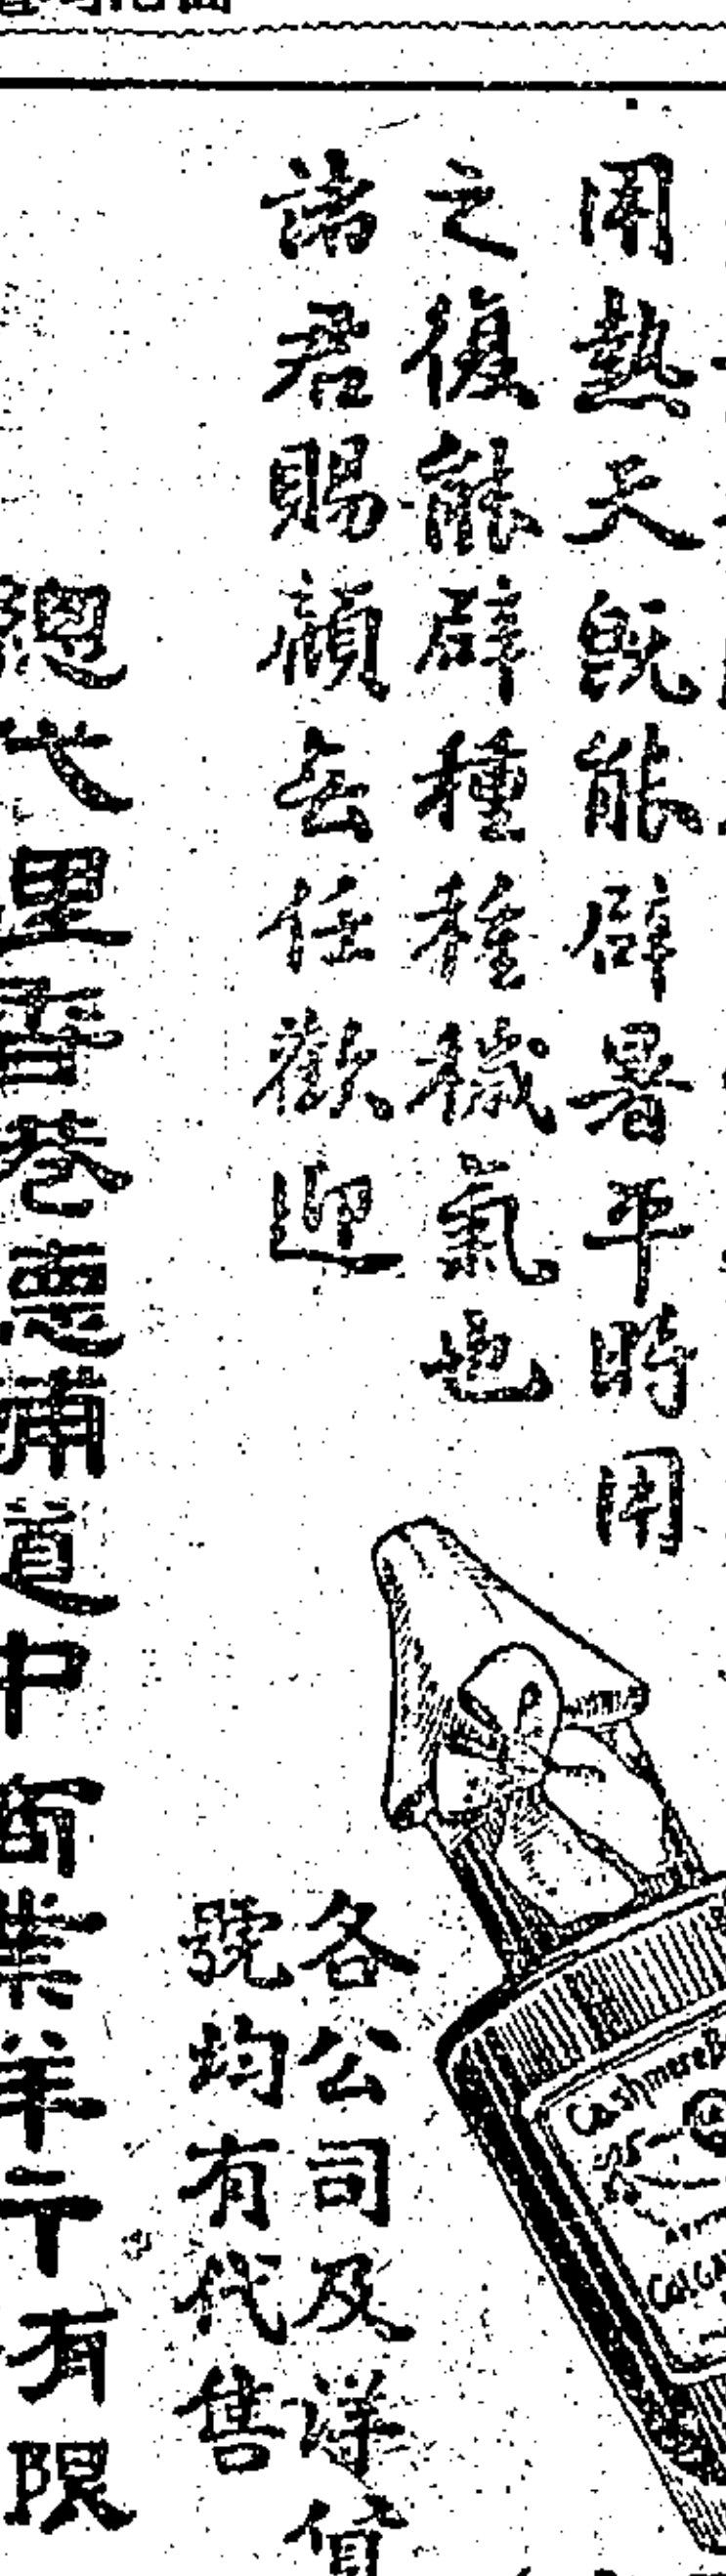 用熱天既能辟暑平時用
之復能辟種種穢氣也
諸君賜顧無任歡迎
各公司及洋貨
號均有代售
總代理香港德輔道中商業洋行有限
Cashmere
COLGA